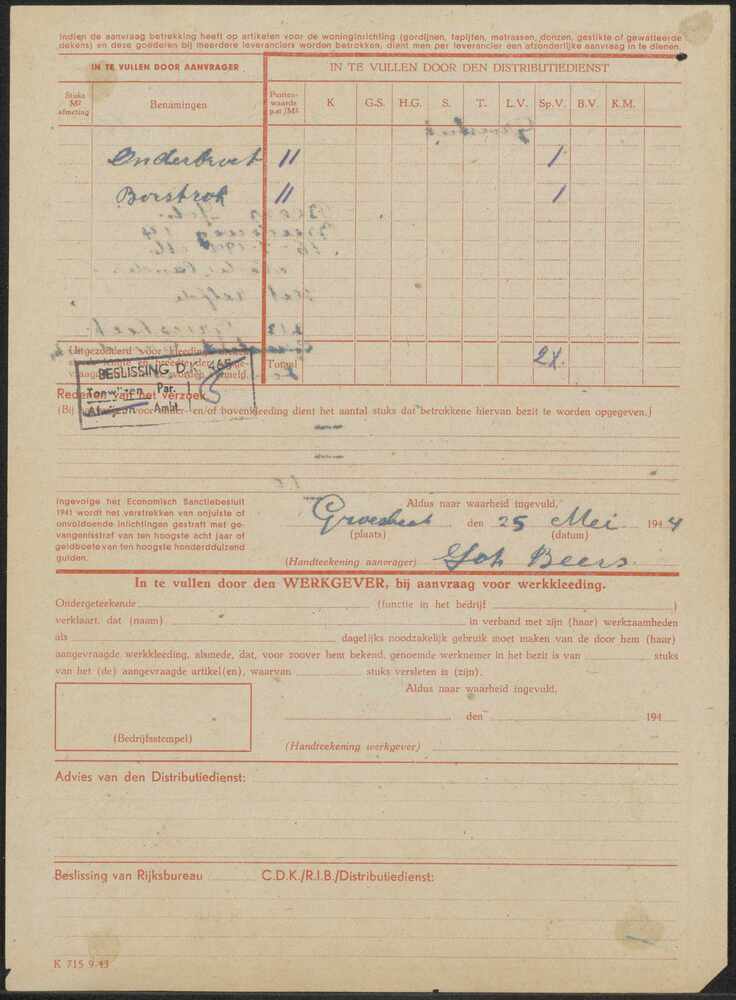 Indien de aanvraag betrekking heeft op artikelen voor de woninginrichting (gordijnen, tapijten, matrassen, donzen, gestikte of gewatteerde
dekens) en deze goederen bij meerdere leveranciers worden betrokken, dient men per leverancier een afzonderlijke aanvraag in te dienen.
IN TE VULLEN DOOR AANVRAGER
IN TE VULLEN DOOR DEN DISTRIBUTIEDIENST
Stuks M² afmeting
Benamingen
Punten-waarde p.st/M²
K G.S. H.G. S. T. L.V. Sp.V. B.V. K.M.
Onderbroek 11 1
Borstrok 11 1
Uitgezonderd voor kleeding
Totaal
2x.
BESLISSING D.K. 465
Toewijzen Par.
Afwijzen Ambt.
5
Redenen van het verzoek
(Bij aanvraag voor onder- en/of bovenkleeding dient het aantal stuks dat betrokkene hiervan bezit te worden opgegeven.)
Ingevolge het Economisch Sanctiebesluit
1941 wordt het verstrekken van onjuiste of
onvoldoende inlichtingen gestraft met ge-
vangenisstraf van ten hoogste acht jaar of
geldboete van ten hoogste honderdduizend
gulden.
Aldus naar waarheid ingevuld,
Groesbeek den 25 Mei 1944
(plaats) (datum)
(Handteekening aanvrager) Joh Beers
In te vullen door den WERKGEVER, bij aanvraag voor werkkleeding.
Ondergeteekende (functie in het bedrijf )
verklaart, dat (naam) in verband met zijn (haar) werkzaamheden
als dagelijks noodzakelijk gebruik moet maken van de door hem (haar)
aangevraagde werkkleeding, alsmede, dat, voor zoover hem bekend, genoemde werknemer in het bezit is van stuks
van het (de) aangevraagde artikel(en), waarvan stuks versleten is (zijn).
Aldus naar waarheid ingevuld,
den 194
(Bedrijfsstempel)
(Handteekening werkgever)
Advies van den Distributiedienst:
Beslissing van Rijksbureau C.D.K./R.I.B./Distributiedienst:
K 715 9-43